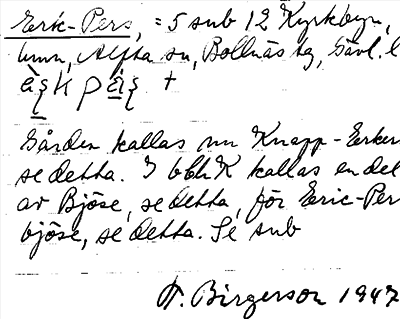 Eric-Pers, = 5 sub 12 Kyrkbyn,
hmn, Alfta sn, Bollnäs tg, Gävl. l
Gården kallas nu Knapp-Erkers
se detta. I bbhK kallas en del
av Bjöse, se detta, för Eric-Per
bjöse, se detta. Se sub
H. Birgerson 1947